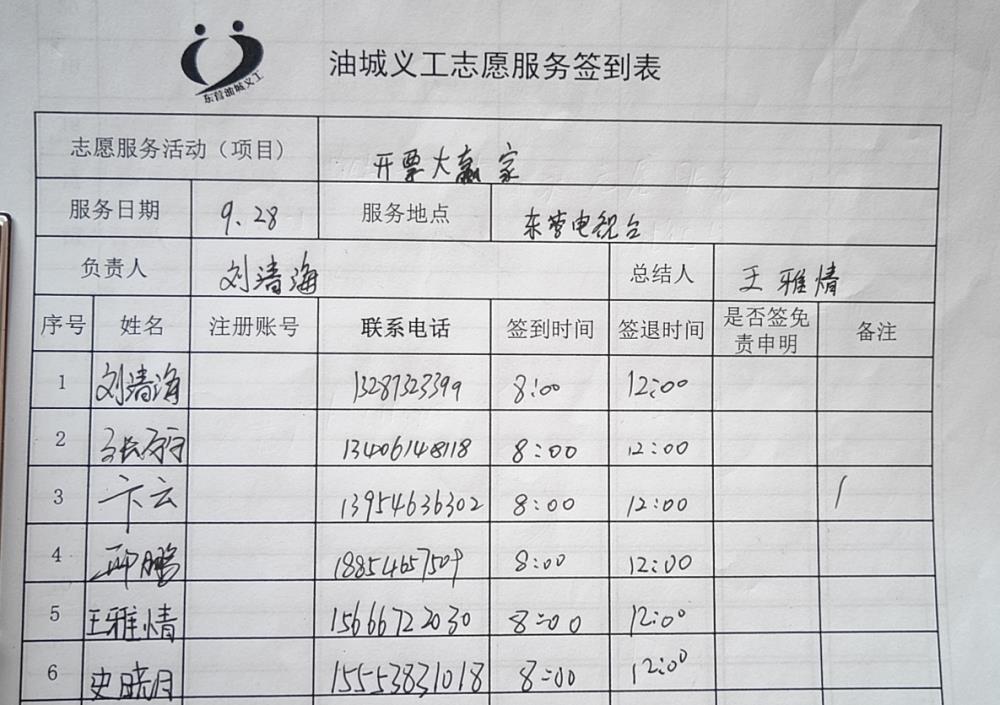 东营油城义工
油城义工志愿服务签到表
志愿服务活动（项目） 开票大赢家
服务日期 9、28 服务地点 东营电视台
负责人 刘清海 总结人 王雅情
序号 姓名 注册账号 联系电话 签到时间 签退时间 是否签免责申明 备注
1 刘清海 13287323399 8:00 12:00
2 13406148118 8:00 12:00
3 卞云 13954636302 8:00 12:00 /
4 邢鹏 18854657509 8:00 12:00
5 王雅情 15666722030 8:00 12:00
6 史晓月 15553831018 8:00 12:00